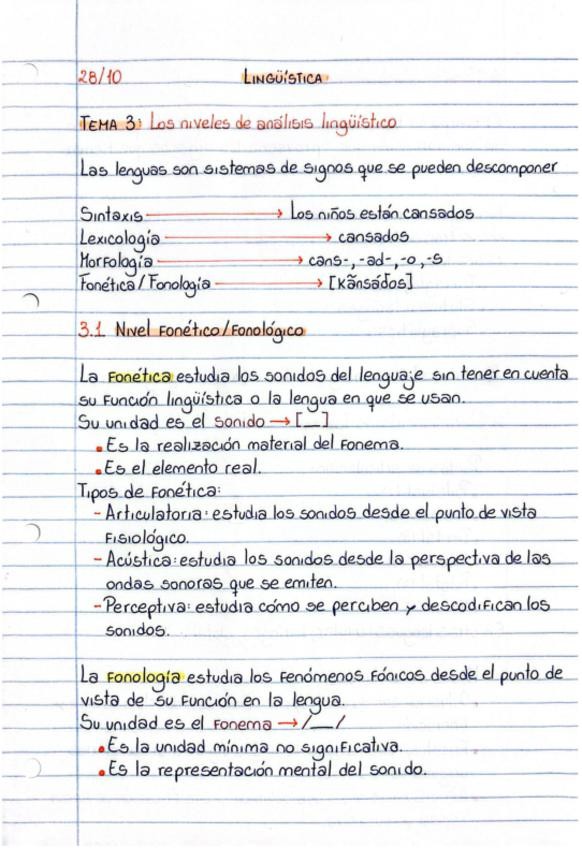 28/10 LINGÜÍSTICA
TEMA 3: Los niveles de análisis lingüístico
Las lenguas son sistemas de signos que se pueden descomponer
Sintaxis → Los niños están cansados
Lexicología → cansados
Morfología → cans-, -ad-, -o, -s
Fonética / Fonología → [kãnsádos]
3.1 Nivel Fonético/Fonológico
La Fonética estudia los sonidos del lenguaje sin tener en cuenta
su función lingüística o la lengua en que se usan.
Su unidad es el sonido → [__]
• Es la realización material del fonema.
• Es el elemento real.
Tipos de fonética:
- Articulatoria: estudia los sonidos desde el punto de vista
fisiológico.
- Acústica: estudia los sonidos desde la perspectiva de las
ondas sonoras que se emiten.
- Perceptiva: estudia cómo se perciben y descodifican los
sonidos.
La Fonología estudia los fenómenos fónicos desde el punto de
vista de su función en la lengua.
Su unidad es el fonema → /__/
• Es la unidad mínima no significativa.
• Es la representación mental del sonido.